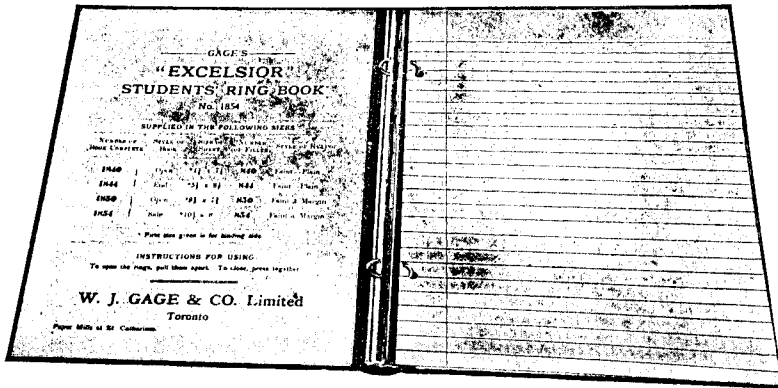 GAGE'S
"EXCELSIOR"
STUDENTS' RING BOOK
No. 1854
SUPPLIED IN THE FOLLOWING SIZES
NUMBER OF
BOOK COMPLETE
STYLE OF RULING
1840 Open 840 Faint Plain
1844 End 844 Faint Plain
1850 Open 850 Faint & Margin
1854 Side 854 Faint & Margin
* First size given is for binding side
INSTRUCTIONS FOR USING
To open the rings, pull them apart. To close, press together
W. J. GAGE & CO. Limited
Toronto
Paper Mills at St. Catharines